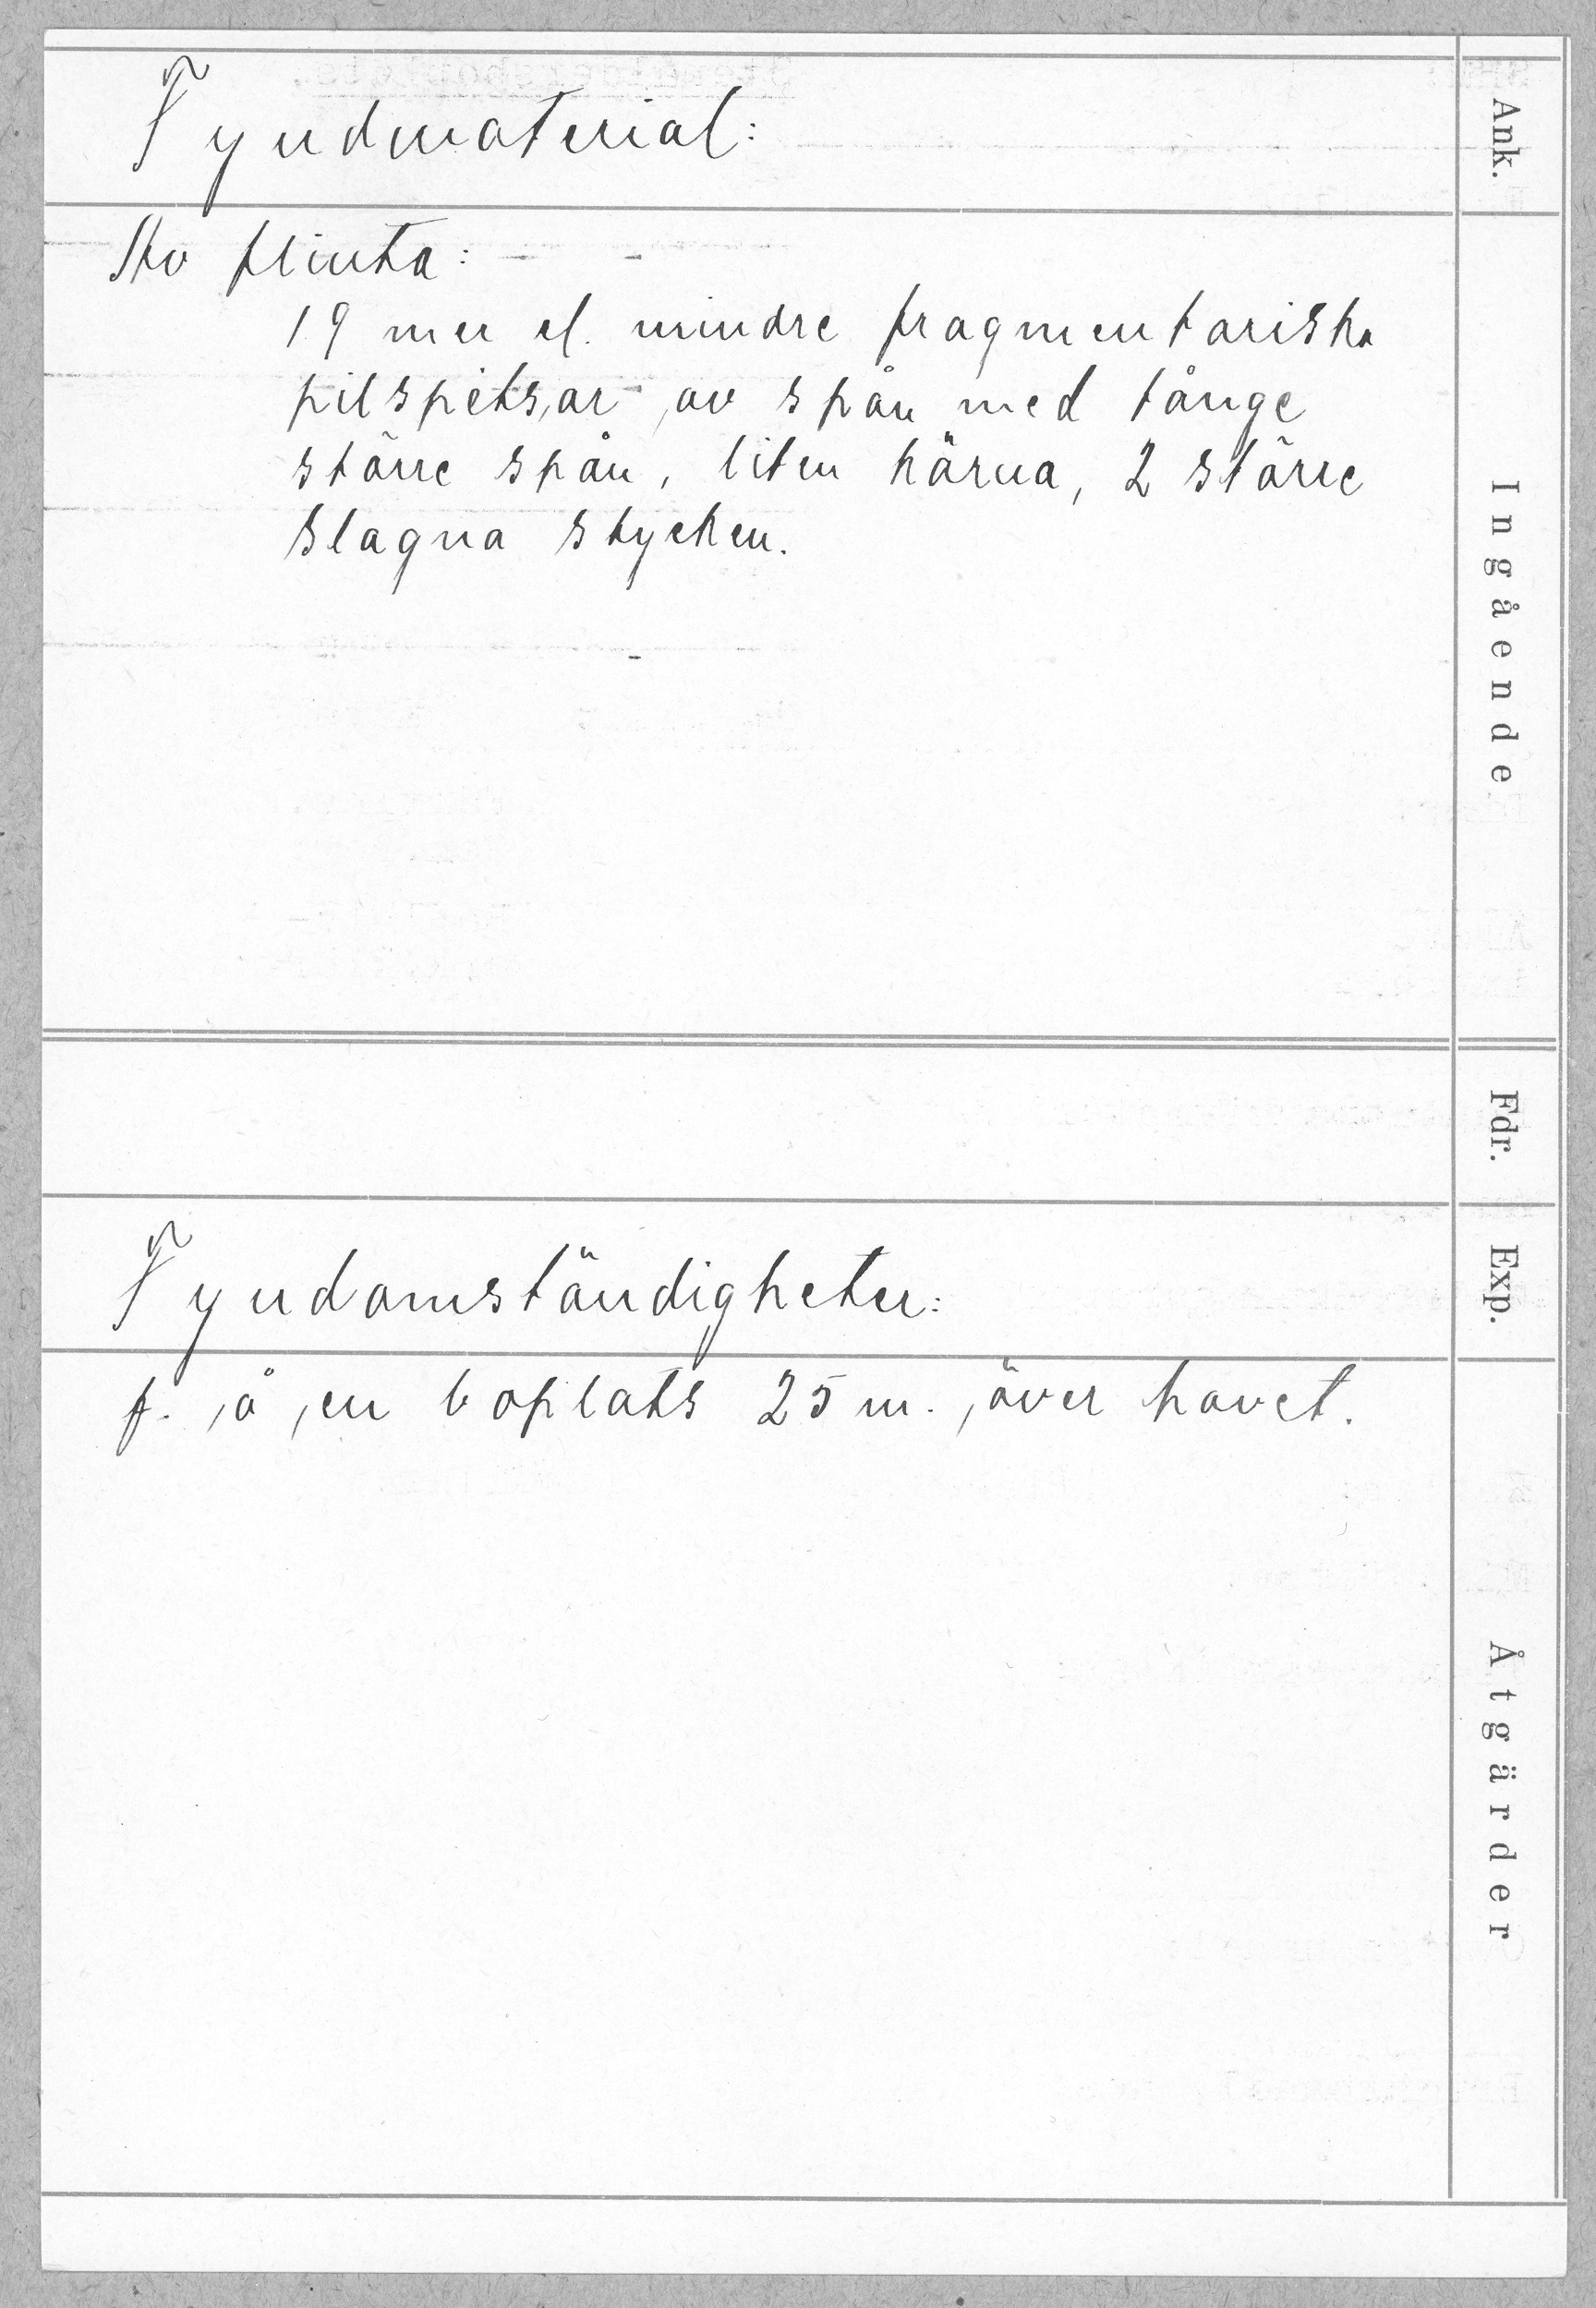 Fyndmaterial:
Av flinta:
19 mer el. mindre fragmentariska
pilspetsar av spån med tånge
större spån, liten kärna, 2 större
slagna stycken.
Fyndomständigheter:
f. å en boplats 25 m. över havet.
Ank.
Ingående
Fdr.
Exp.
Åtgärder